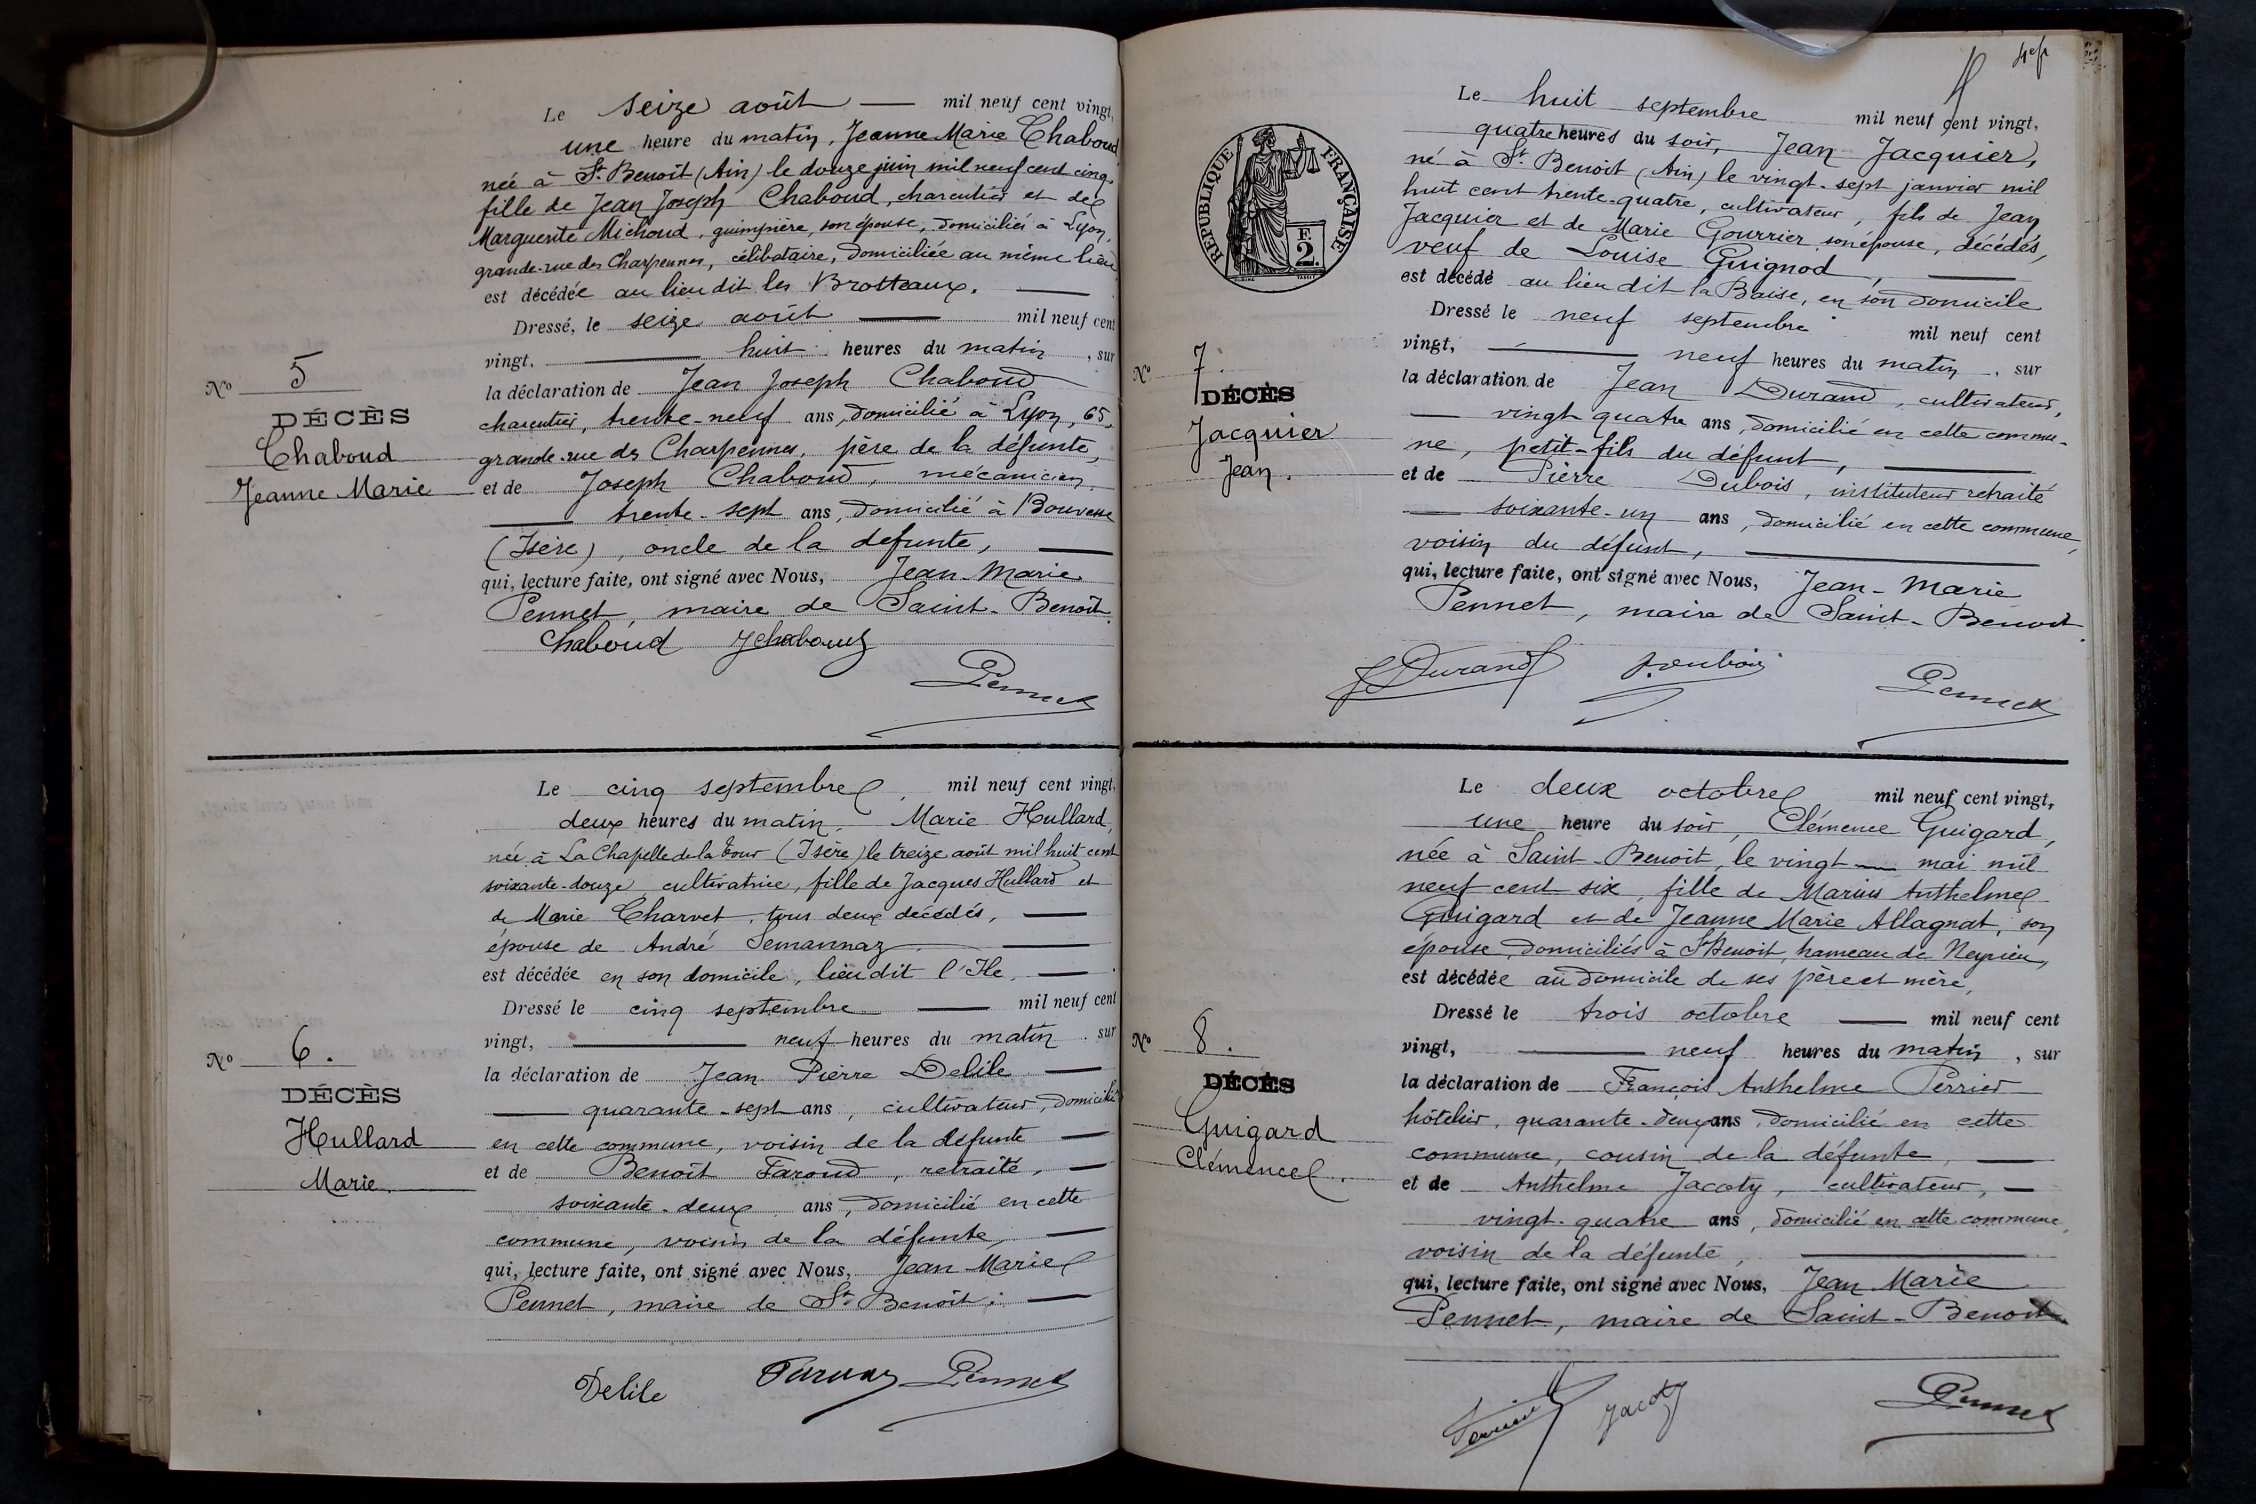 Le seize août — mil neuf cent vingt,
une heure du matin, Jeanne Marie Chaboud
née à St Benoît (Ain) le douze juin mil neuf cent cinq,
fille de Jean Joseph Chaboud, charcutier et de
Marguerite Michoud, guimpière, son épouse, domiciliés à Lyon,
grande-rue des Charpennes, célibataire, domiciliée au même lieu
est décédée au lieu dit les Brotteaux. —
Dressé, le seize août — mil neuf cent
vingt, — huit heures du matin, sur
la déclaration de Jean Joseph Chaboud
charcutier, trente-neuf ans, domicilié à Lyon, 65,
grande-rue des Charpennes, père de la défunte,
et de Joseph Chaboud, mécanicien,
— trente-sept ans, domicilié à Bouvesse
(Isère), oncle de la défunte, —
qui, lecture faite, ont signé avec Nous, Jean-Marie
Pennet, maire de Saint-Benoît.
Chaboud JChaboud
Pennet
No 5
DÉCÈS
Chaboud
Jeanne Marie
Le cinq septembre, mil neuf cent vingt,
deux heures du matin, Marie Hullard,
née à La Chapelle de la Tour (Isère) le treize août mil huit cent
soixante-douze, cultivatrice, fille de Jacques Hullard et
de Marie Charvet, tous deux décédés, —
épouse de André Semannaz —
est décédée en son domicile, lieu dit l'Ile, —
Dressé le cinq septembre — mil neuf cent
vingt, — neuf heures du matin, sur
la déclaration de Jean Pierre Delile —
— quarante-sept ans, cultivateur, domicilié
en cette commune, voisin de la défunte —
et de Benoît Faroud, retraité, —
soixante-deux ans, domicilié en cette
commune, voisin de la défunte, —
qui, lecture faite, ont signé avec Nous, Jean-Marie
Pennet, maire de St Benoît. —
No 6.
DÉCÈS
Hullard
Marie.
Delile Pennet
4e f
RÉPUBLIQUE FRANÇAISE
F.
2.
Le huit septembre mil neuf cent vingt,
quatre heures du soir, Jean Jacquier,
né à St Benoit (Ain) le vingt-sept janvier mil
huit cent trente-quatre, cultivateur, fils de Jean
Jacquier et de Marie Gourrier, son épouse, décédés,
veuf de Louise Guignod, —
est décédé au lieu dit la Baise, en son domicile
Dressé le neuf septembre mil neuf cent
vingt, — neuf heures du matin, sur
la déclaration de Jean Durand, cultivateur,
— vingt quatre ans, domicilié en cette commu-
ne, petit-fils du défunt, —
et de Pierre Dubois, instituteur retraité
— soixante-un ans, domicilié en cette commune,
voisin du défunt, —
qui, lecture faite, ont signé avec Nous, Jean-Marie
Pennet, maire de Saint-Benoit.
JDurand P. Dubois Pennet
No 7.
DÉCÈS
Jacquier
Jean.
Le deux octobre mil neuf cent vingt,
une heure du soir, Clémence Guigard,
née à Saint-Benoit, le vingt — mai mil
neuf cent six, fille de Marius Anthelme
Guigard et de Jeanne Marie Allagnat, son
épouse, domiciliés à St Benoit, hameau de Neyrieu,
est décédée au domicile de ses père et mère,
Dressé le trois octobre — mil neuf cent
vingt, — neuf heures du matin, sur
la déclaration de François Anthelme Perrier
hôtelier, quarante-deux ans, domicilié en cette
commune, cousin de la défunte, —
et de Anthelme Jacoty, cultivateur, —
vingt-quatre ans, domicilié en cette commune,
voisin de la défunte, —
qui, lecture faite, ont signé avec Nous, Jean Marie
Pennet, maire de Saint-Benoit
No 8.
DÉCÈS
Guigard
Clémence.
Perrier Jacoty Pennet